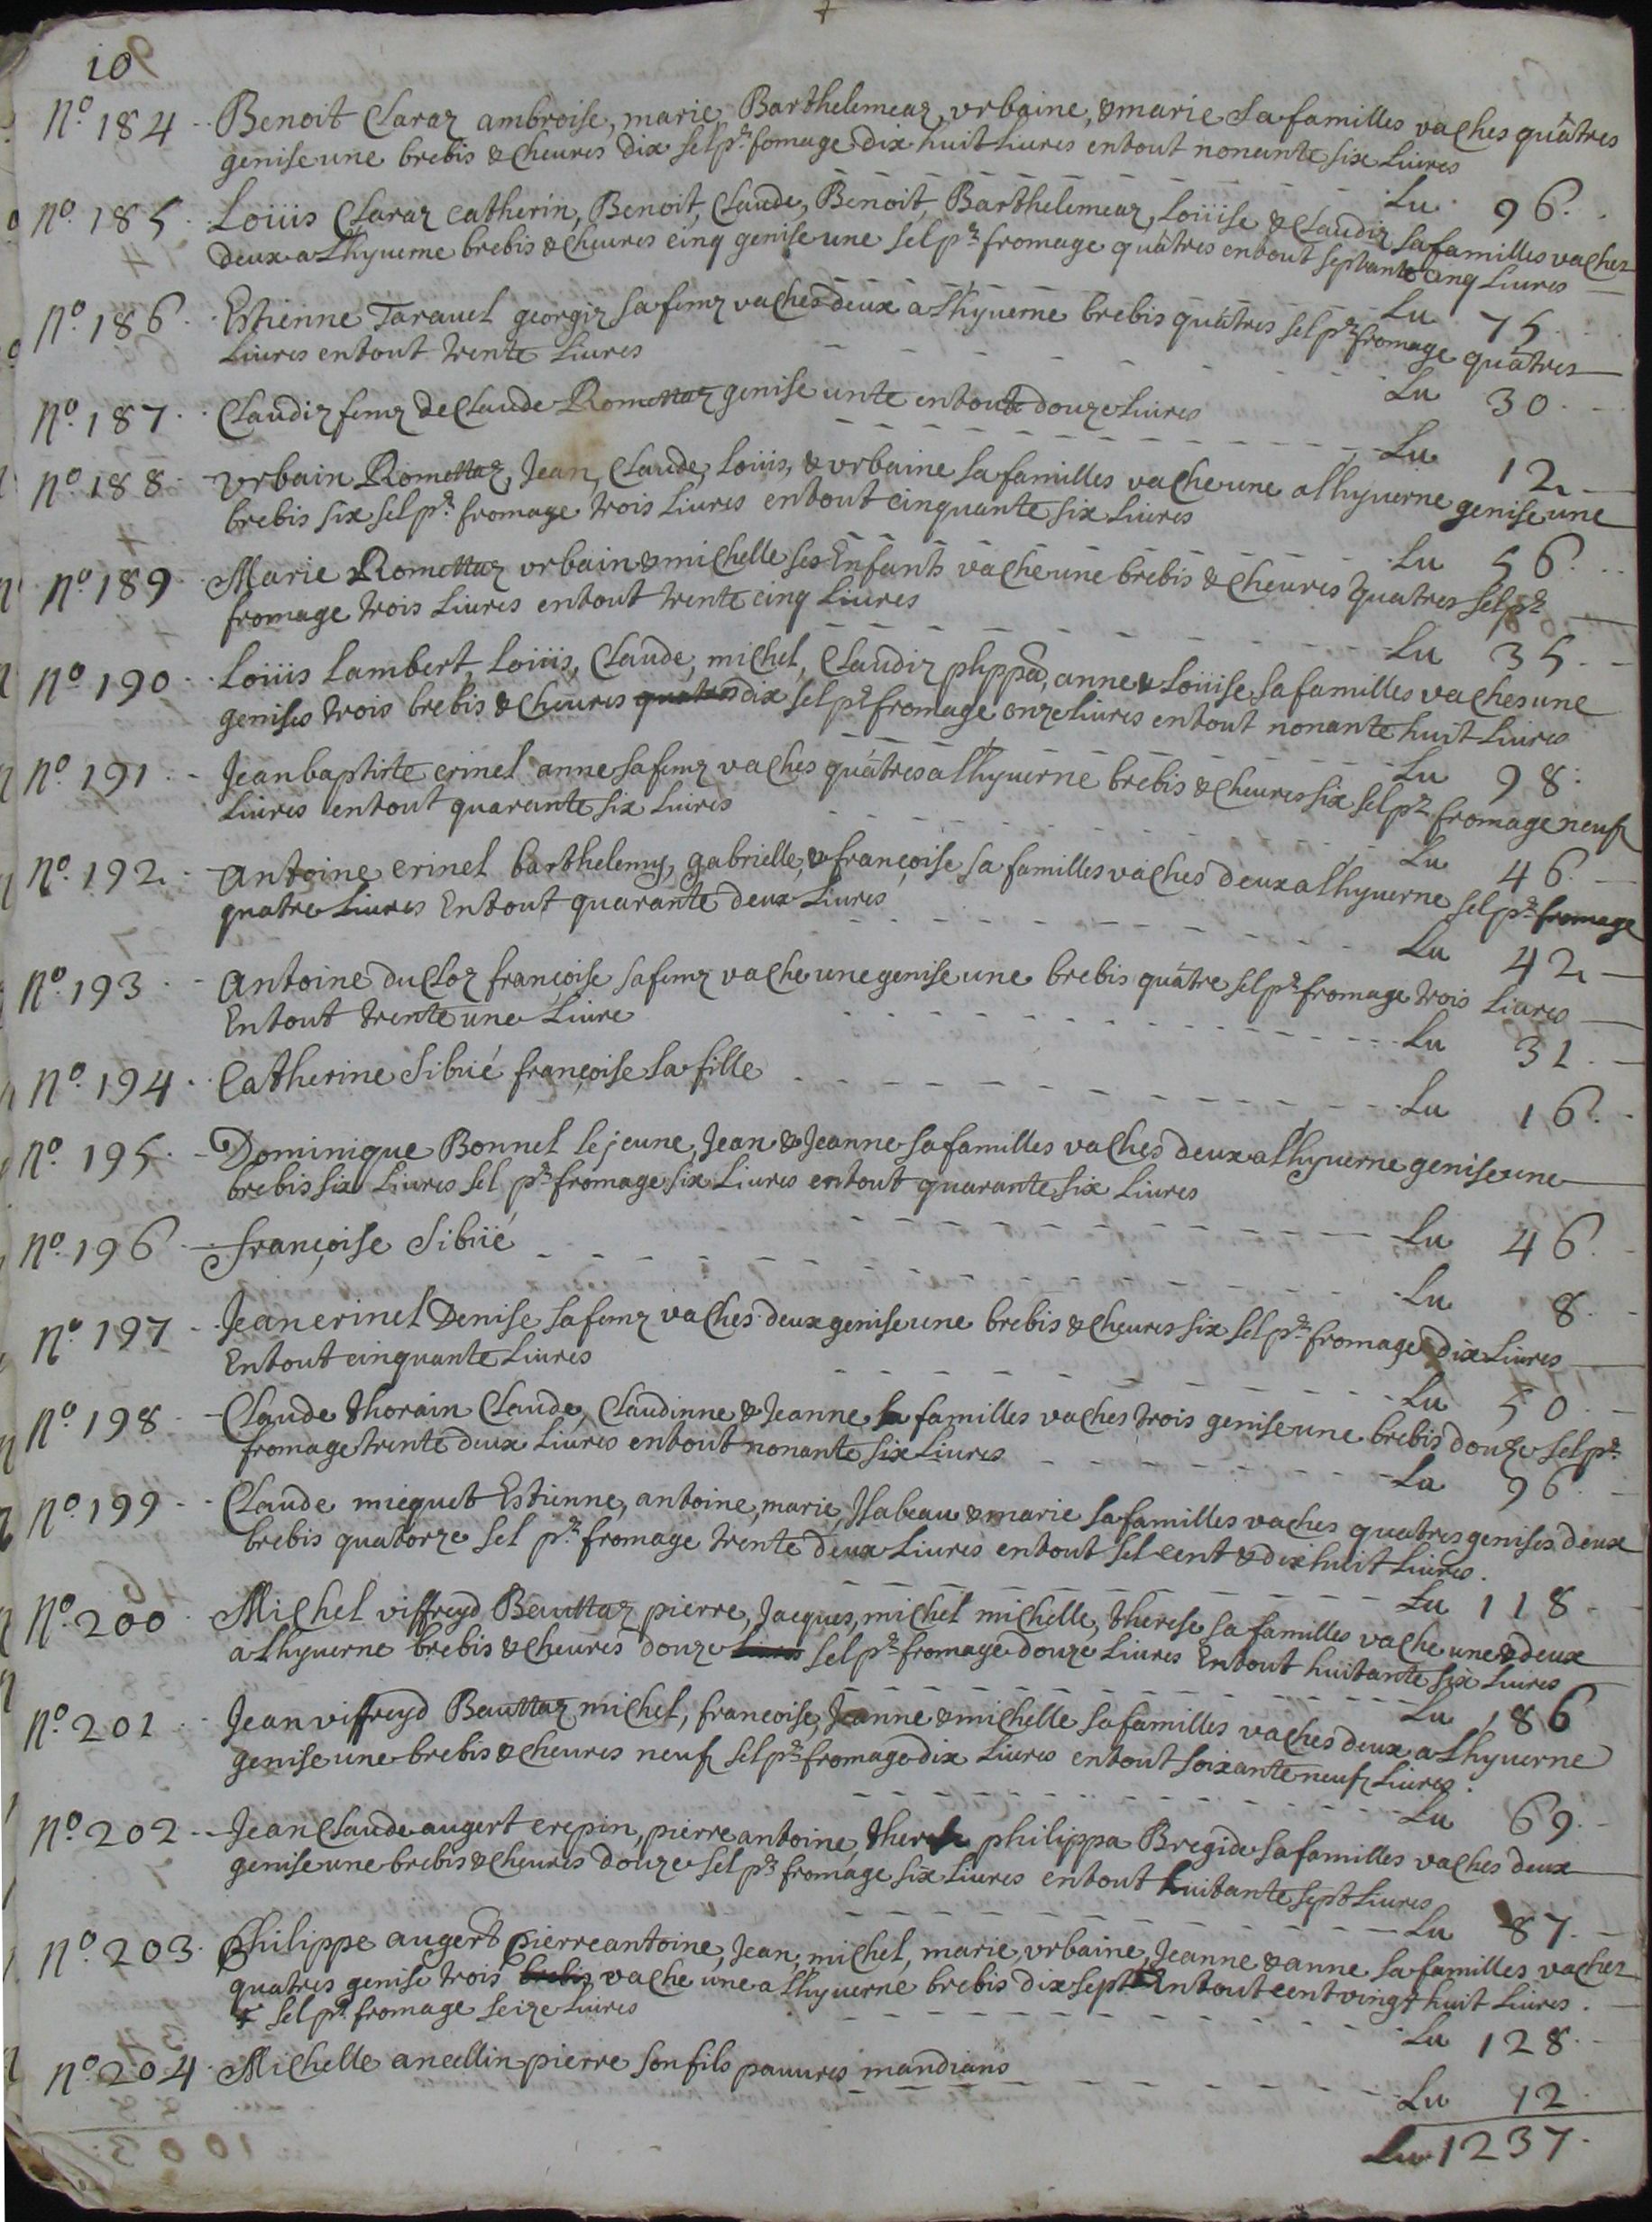 10
N.º 184 Benoit Claraz ambroise, marie, Barthelemeaz, vrbaine, & marie sa familles vaches quâtres
genise une brebis & cheures dix sel p.r fomage dix huit Liures entout nonante six Liures
Lu 96.
N.º 185 Loüis Claraz catherin, Benoit, Claude, Benoit, Barthelemeaz, Loüise & Claudiz sa familles vaches
deux a Lhyuerne brebis & cheures cinq genise une sel p.r fromage quâtres entout septante cinq Liures
Lu 75.
N.º 186 Estienne Tarauel georgiz sa femz vaches deux a Lhyuerne brebis quâtres sel p.r fromage quâtres
Liures entout trente Liures
Lu 30.
N.º 187 Claudiz femz de Claude Romettaz genise unte entout douze Liures
Lu 12
N.º 188 Vrbain Romettaz, Jean, Claude, Loüis, & vrbaine sa familles vache une a Lhyuerne genise une
brebis six sel p.r fromage trois Liures entout cinquante six Liures
Lu 56.
N.º 189 Marie Romettaz vrbain & michelle ses Enfants vache une brebis & cheures quatres sel p.r
fromage trois Liures entout trente cinq Liures
Lu 35.
N.º 190 Loüis Lambert, Loüis, Claude, michel, Claudiz phppa, anne & Loüise sa familles vaches une
genises trois brebis & cheures quatres dix sel p.r fromage onze Liures entout nonante huit Liures
Lu 98.
N.º 191 Jean baptiste crinel anne sa femz vaches quâtres a Lhyuerne brebis & cheures six sel p.r fromage neuf
Liures entout quarante six Liures
Lu 46.
N.º 192 Antoine crinel barthelemy, gabrielle, & françoise sa familles vaches deux a Lhyuerne sel p.r fromage
quatre Liures Entout quarante deux Liures
Lu 42
N.º 193 Antoine du Cloz françoise sa femz vache une genise une brebis quâtre sel p.r fromage trois Liures
Entout trente une Liure
Lu 31.
N.º 194 Catherine Sibüé françoise sa fille
Lu 16.
N.º 195 Dominique Bonnel le jeune, Jean & Jeanne sa familles vaches deux a Lhyuerne genise une
brebis six Liures sel p.r fromage six Liures entout quarante six Liures
Lu 46.
N.º 196 françoise Sibüé
Lu 8.
N.º 197 Jean crinel Denise sa femz vaches deux genise une brebis & cheures six sel p.r fromage dix Liures
Entout cinquante Liures
Lu 50.
N.º 198 Claude thorain Claude, Claudinne & Jeanne sa familles vaches trois genise une brebis douze sel p.r
fromage trente deux Liures entout nonante six Liures
Lu 96.
N.º 199 Claude micquet Estienne, antoine, marie, Jsabeau & marie sa familles vaches quatres genises deux
brebis quatorze sel p.r fromage trente deux Liures entout sel cent & dix huit Liures.
Lu 118
N.º 200 Michel viffreyd Beuttaz pierre, Jacques, michel michelle, therese sa familles vache une & deux
a Lhyuerne brebis & cheures douze Liures sel p.r fromage douze Liures Entout huitante six Liures
Lu 86
N.º 201 Jean viffreyd Beuttaz michel, francoise, Jeanne & michelle sa familles vaches deux a Lhyuerne
genise une brebis & cheures neuf sel p.r fromage dix Liures entout soixante neuf Liures.
Lu 69.
N.º 202 Jean Claude augert crepin, pierre antoine, therese philippa Bregide sa familles vaches deux
genise une brebis & cheures douze sel p.r fromage six Liures entout huitante sept Liures
Lu 87.
N.º 203 Philippe augert pierre antoine, Jean, michel, marie, vrbaine, Jeanne & anne sa familles vaches
quatres genise trois brebis vache une a Lhyuerne brebis dix sept Entout cent vingt huit Liures.
+ sel p.r fromage seize Liures
Lu 128.
N.º 204 Michelle ancellin pierre son fils pauures mandians
Lu 12.
Lu 1237.